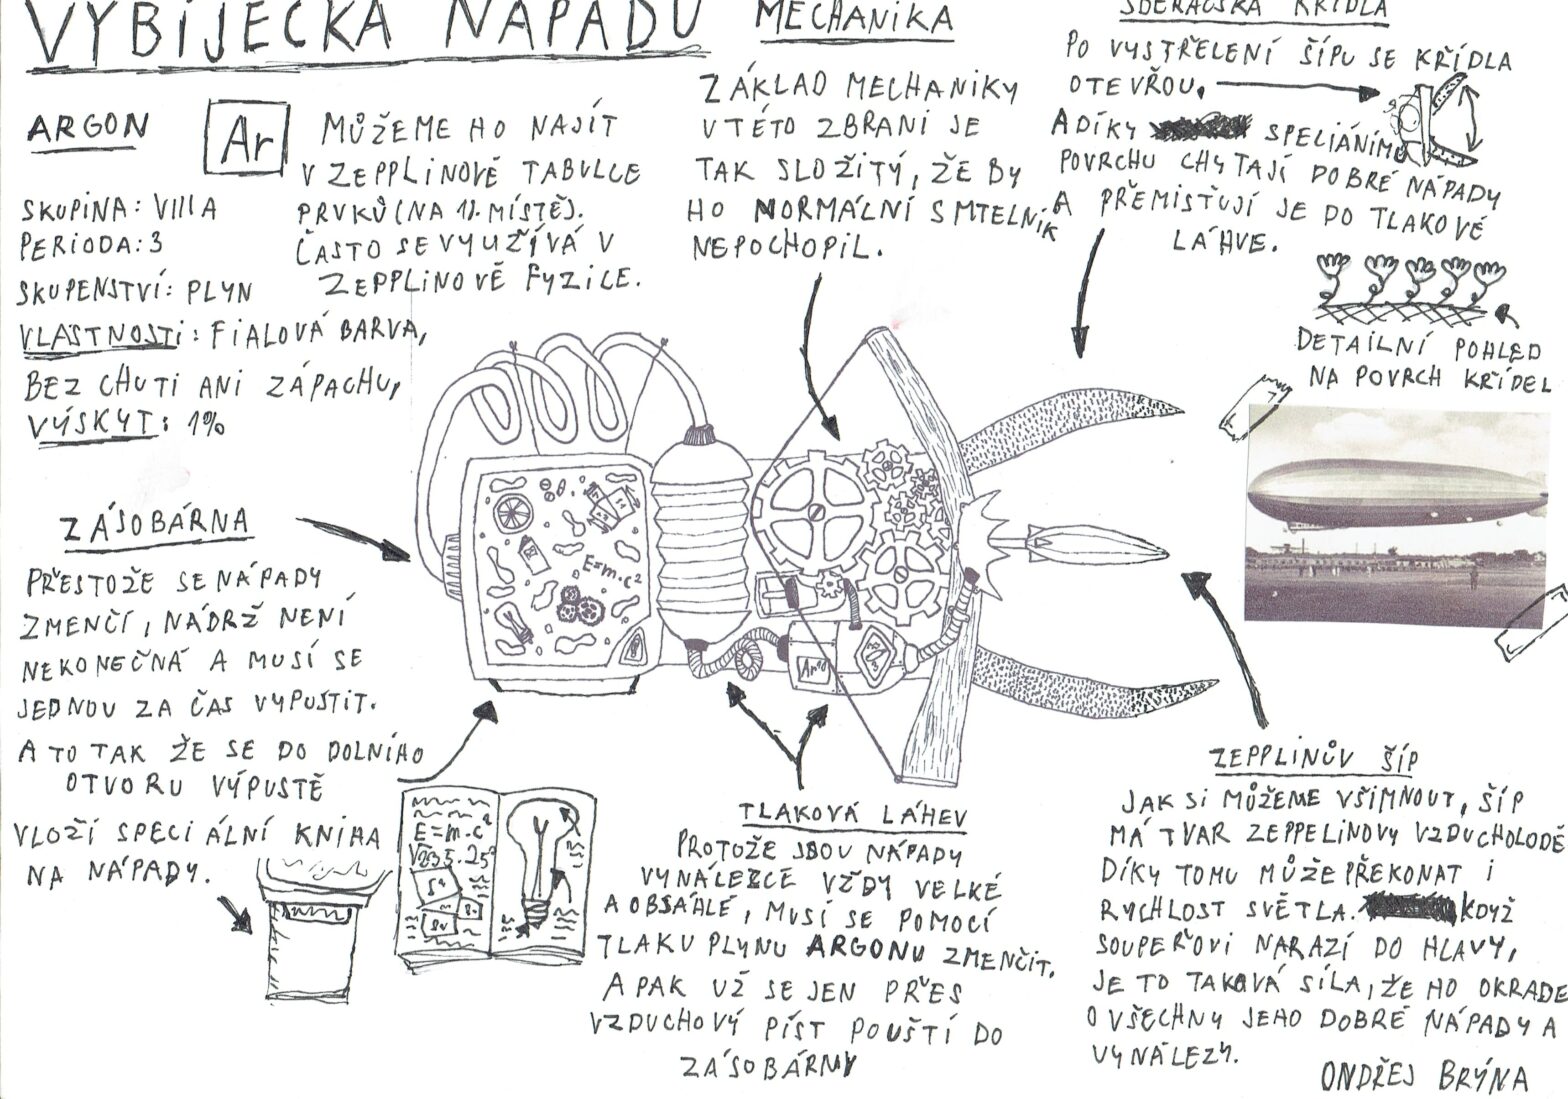 VYBÍJEČKA NÁPADŮ
ARGON
Ar
SKUPINA: VIII A
PERIODA: 3
SKUPENSTVÍ: PLYN
VLASTNOSTI: FIALOVÁ BARVA,
BEZ CHUTI ANI ZÁPACHU,
VÝSKYT: 1%
MŮŽEME HO NAJÍT
V ZEPPLINOVĚ TABULCE
PRVKŮ (NA 1). MÍSTĚ).
ČASTO SE VYUŽÍVÁ V
ZEPPLINOVĚ FYZICE.
MECHANIKA
ZÁKLAD MECHANIKY
V TÉTO ZBRANI JE
TAK SLOŽITÝ, ŽE BY
HO NORMÁLNÍ SMTELNÍK
NEPOCHOPIL.
SBĚRAČSKÁ KŘÍDLA
PO VYSTŘELENÍ ŠÍPU SE KŘÍDLA
OTEVŘOU.
A DÍKY SPECIÁNÍMU
POVRCHU CHYTAJÍ DOBRÉ NÁPADY
A PŘEMISŤUJÍ JE DO TLAKOVÉ
LÁHVE.
DETAILNÍ POHLED
NA POVRCH KŘÍDEL
ZÁSOBÁRNA
PŘESTOŽE SE NÁPADY
ZMENČÍ, NÁDRŽ NENÍ
NEKONEČNÁ A MUSÍ SE
JEDNOU ZA ČAS VYPUSTIT.
A TO TAK ŽE SE DO DOLNÍHO
OTVORU VÝPUSTĚ
VLOŽÍ SPECIÁLNÍ KNIHA
NA NÁPADY.
E=m.c²
Ar
E=m.c²
TLAKOVÁ LÁHEV
PROTOŽE JSOU NÁPADY
VYNÁLEZCE VŽDY VELKÉ
A OBSÁHLÉ, MUSÍ SE POMOCÍ
TLAKU PLYNU ARGONU ZMENČIT.
A PAK UŽ SE JEN PŘES
VZDUCHOVÝ PÍST POUŠTÍ DO
ZÁSOBÁRNY
ZEPPLINŮV ŠÍP
JAK SI MŮŽEME VŠIMNOUT, ŠÍP
MÁ TVAR ZEPPELINOVY VZDUCHOLODĚ
DÍKY TOMU MŮŽE PŘEKONAT I
RYCHLOST SVĚTLA. KDYŽ
SOUPEŘOVI NARAZÍ DO HLAVY,
JE TO TAKOVÁ SÍLA, ŽE HO OKRADE
O VŠECHNY JEHO DOBRÉ NÁPADY A
VYNÁLEZY.
ONDŘEJ BRÝNA